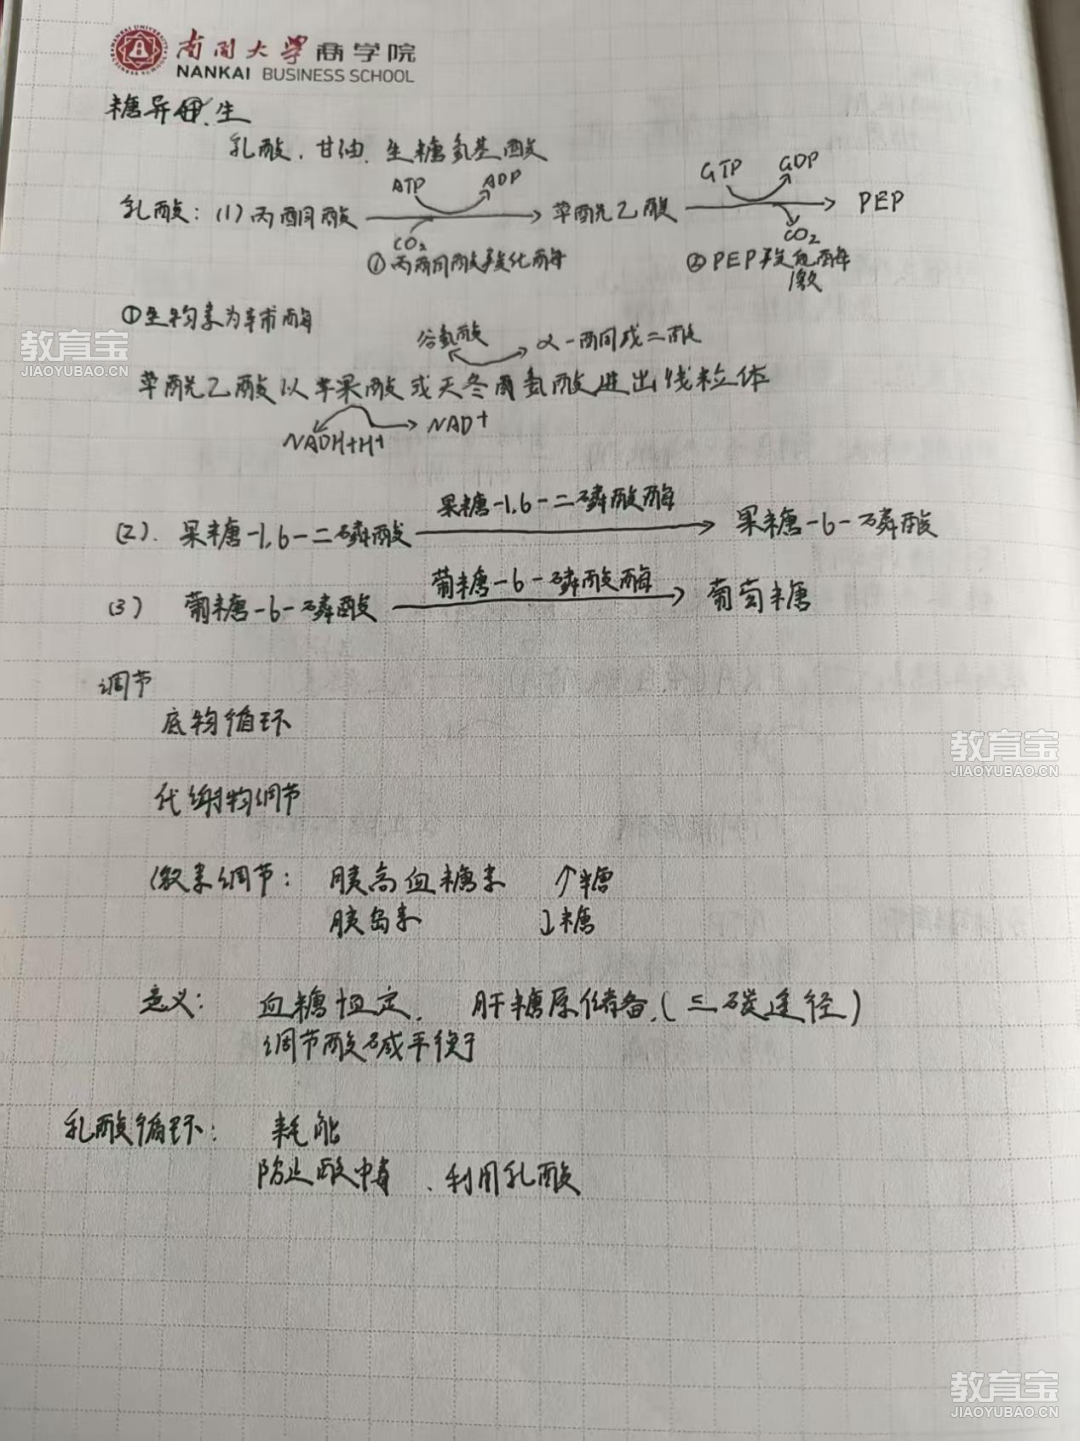 南开大学商学院
NANKAI BUSINESS SCHOOL
糖异生
乳酸、甘油、生糖氨基酸
ATP ADP GTP GDP
乳酸：(1) 丙酮酸 → 草酰乙酸 → PEP
CO₂ CO₂
①丙酮酸羧化酶 ②PEP羧激酶
①生物素为辅酶
谷氨酸 α-酮戊二酸
草酰乙酸以苹果酸或天冬氨酸进出线粒体
NADH+H⁺ → NAD⁺
果糖-1,6-二磷酸酶
(2). 果糖-1,6-二磷酸 → 果糖-6-磷酸
葡糖-6-磷酸酶
(3) 葡糖-6-磷酸 → 葡萄糖
调节
底物循环
代谢物调节
激素调节：胰高血糖素 ↑糖
胰岛素 ↓糖
意义：血糖恒定、肝糖原储备、(三碳途径)
调节酸碱平衡
乳酸循环：耗能
防止酸中毒、利用乳酸
教育宝
JIAOYUBAO.CN
教育宝
JIAOYUBAO.CN
教育宝
JIAOYUBAO.CN